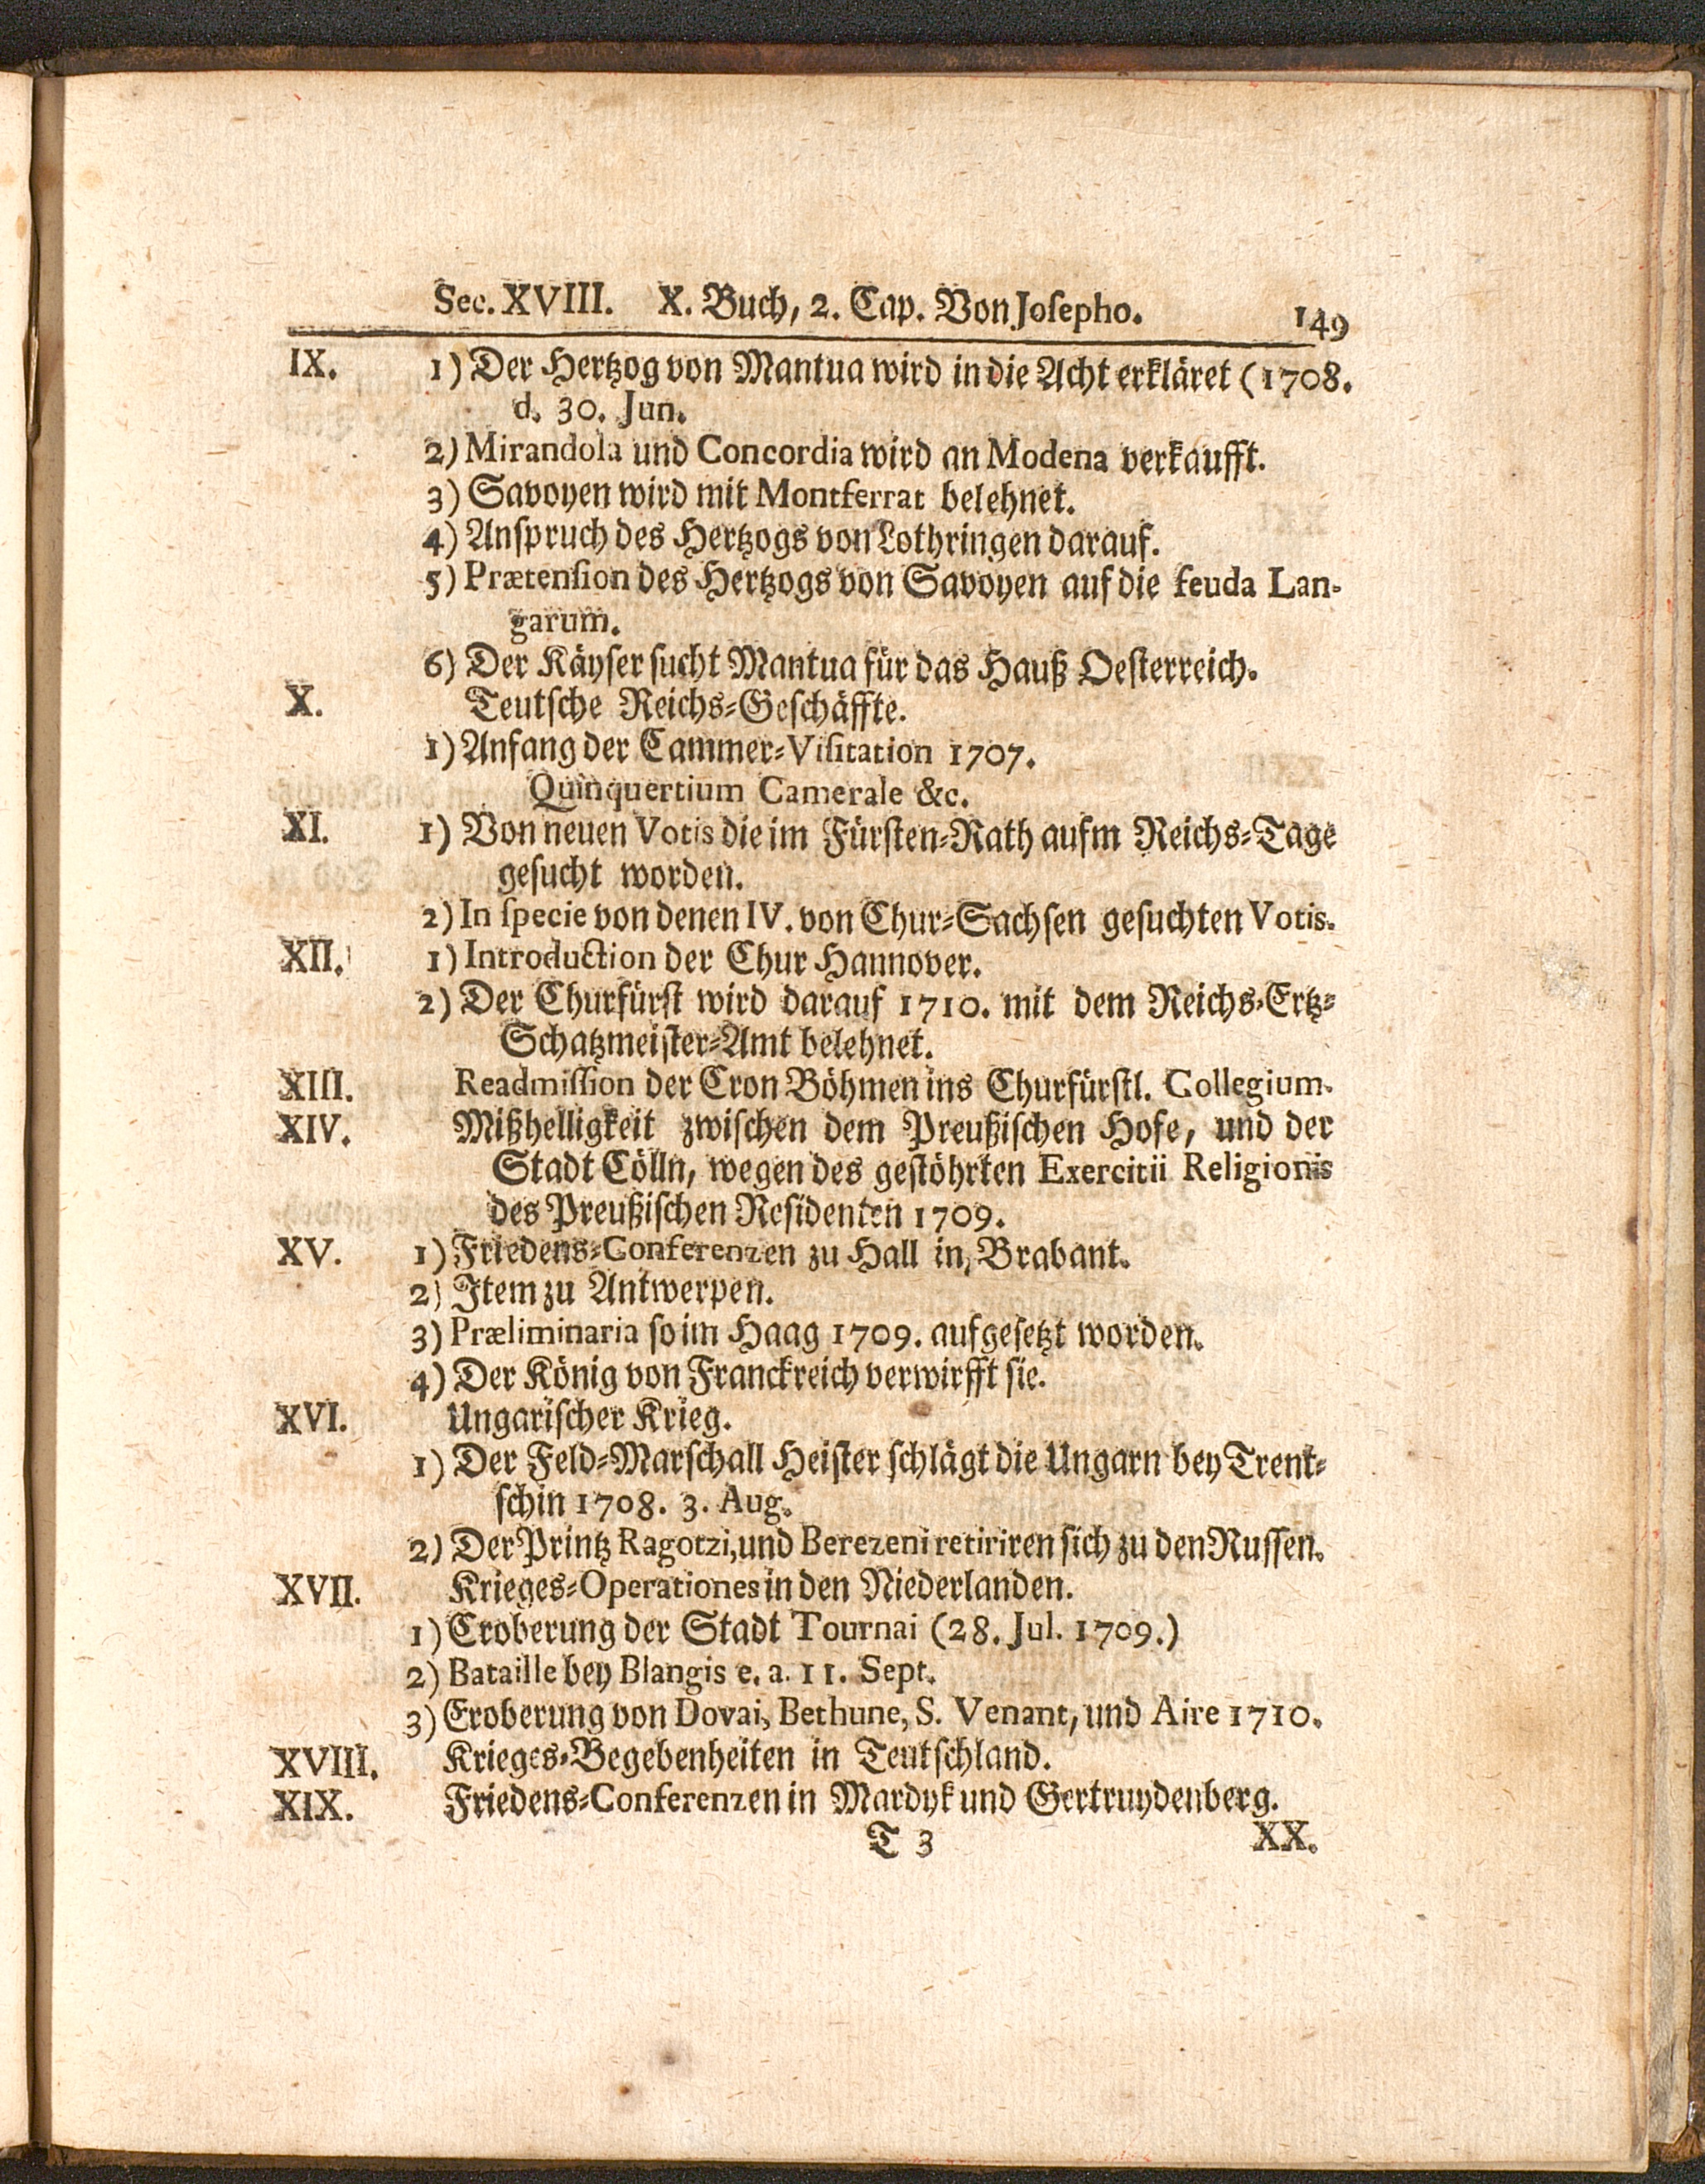 Sec. XVIII. X. Buch, 2. Cap. Von Josepho. 149
IX. 1) Der Hertzog von Mantua wird in die Acht erkläret (1708.
d. 30. Jun.
2) Mirandola und Concordia wird an Modena verkaufft.
3) Savoyen wird mit Montferrat belehnet.
4) Anspruch des Hertzogs von Lothringen darauf.
5) Prætension des Hertzogs von Savoyen auf die feuda Lan-
garum.
6) Der Käyser sucht Mantua für das Hauß Oesterreich.
X. Teutsche Reichs-Geschäffte.
1) Anfang der Cammer-Visitation 1707.
Quinquertium Camerale &c.
XI. 1) Von neuen Votis die im Fürsten-Rath aufm Reichs-Tage
gesucht worden.
2) In specie von denen IV. von Chur-Sachsen gesuchten Votis.
XII. 1) Introduction der Chur Hannover.
2) Der Churfürst wird darauf 1710. mit dem Reichs-Ertz-
Schatzmeister-Amt belehnet.
XIII. Readmission der Cron Böhmen ins Churfürstl. Collegium.
XIV. Mißhelligkeit zwischen dem Preußischen Hofe, und der
Stadt Cölln, wegen des gestöhrten Exercitii Religionis
des Preußischen Residenten 1709.
XV. 1) Friedens-Conferenzen zu Hall in, Brabant.
2) Item zu Antwerpen.
3) Præliminaria so im Haag 1709. aufgesetzt worden.
4) Der König von Franckreich verwirfft sie.
XVI. Ungarischer Krieg.
1) Der Feld-Marschall Heister schlägt die Ungarn bey Trent-
schin 1708. 3. Aug.
2) Der Printz Ragotzi, und Berezeni retiriren sich zu den Russen.
XVII. Krieges-Operationes in den Niederlanden.
1) Eroberung der Stadt Tournai (28. Jul. 1709.)
2) Bataille bey Blangis e. a. 11. Sept.
3) Eroberung von Dovai, Bethune, S. Venant, und Aire 1710.
XVIII. Krieges-Begebenheiten in Teutschland.
XIX. Friedens-Conferenzen in Mardyk und Gertruydenberg.
T 3 XX.